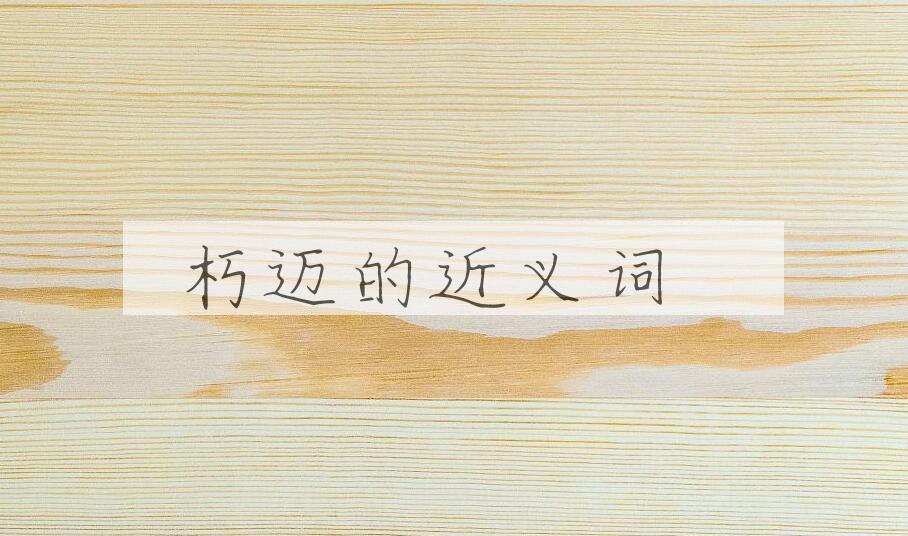 朽迈的近义词